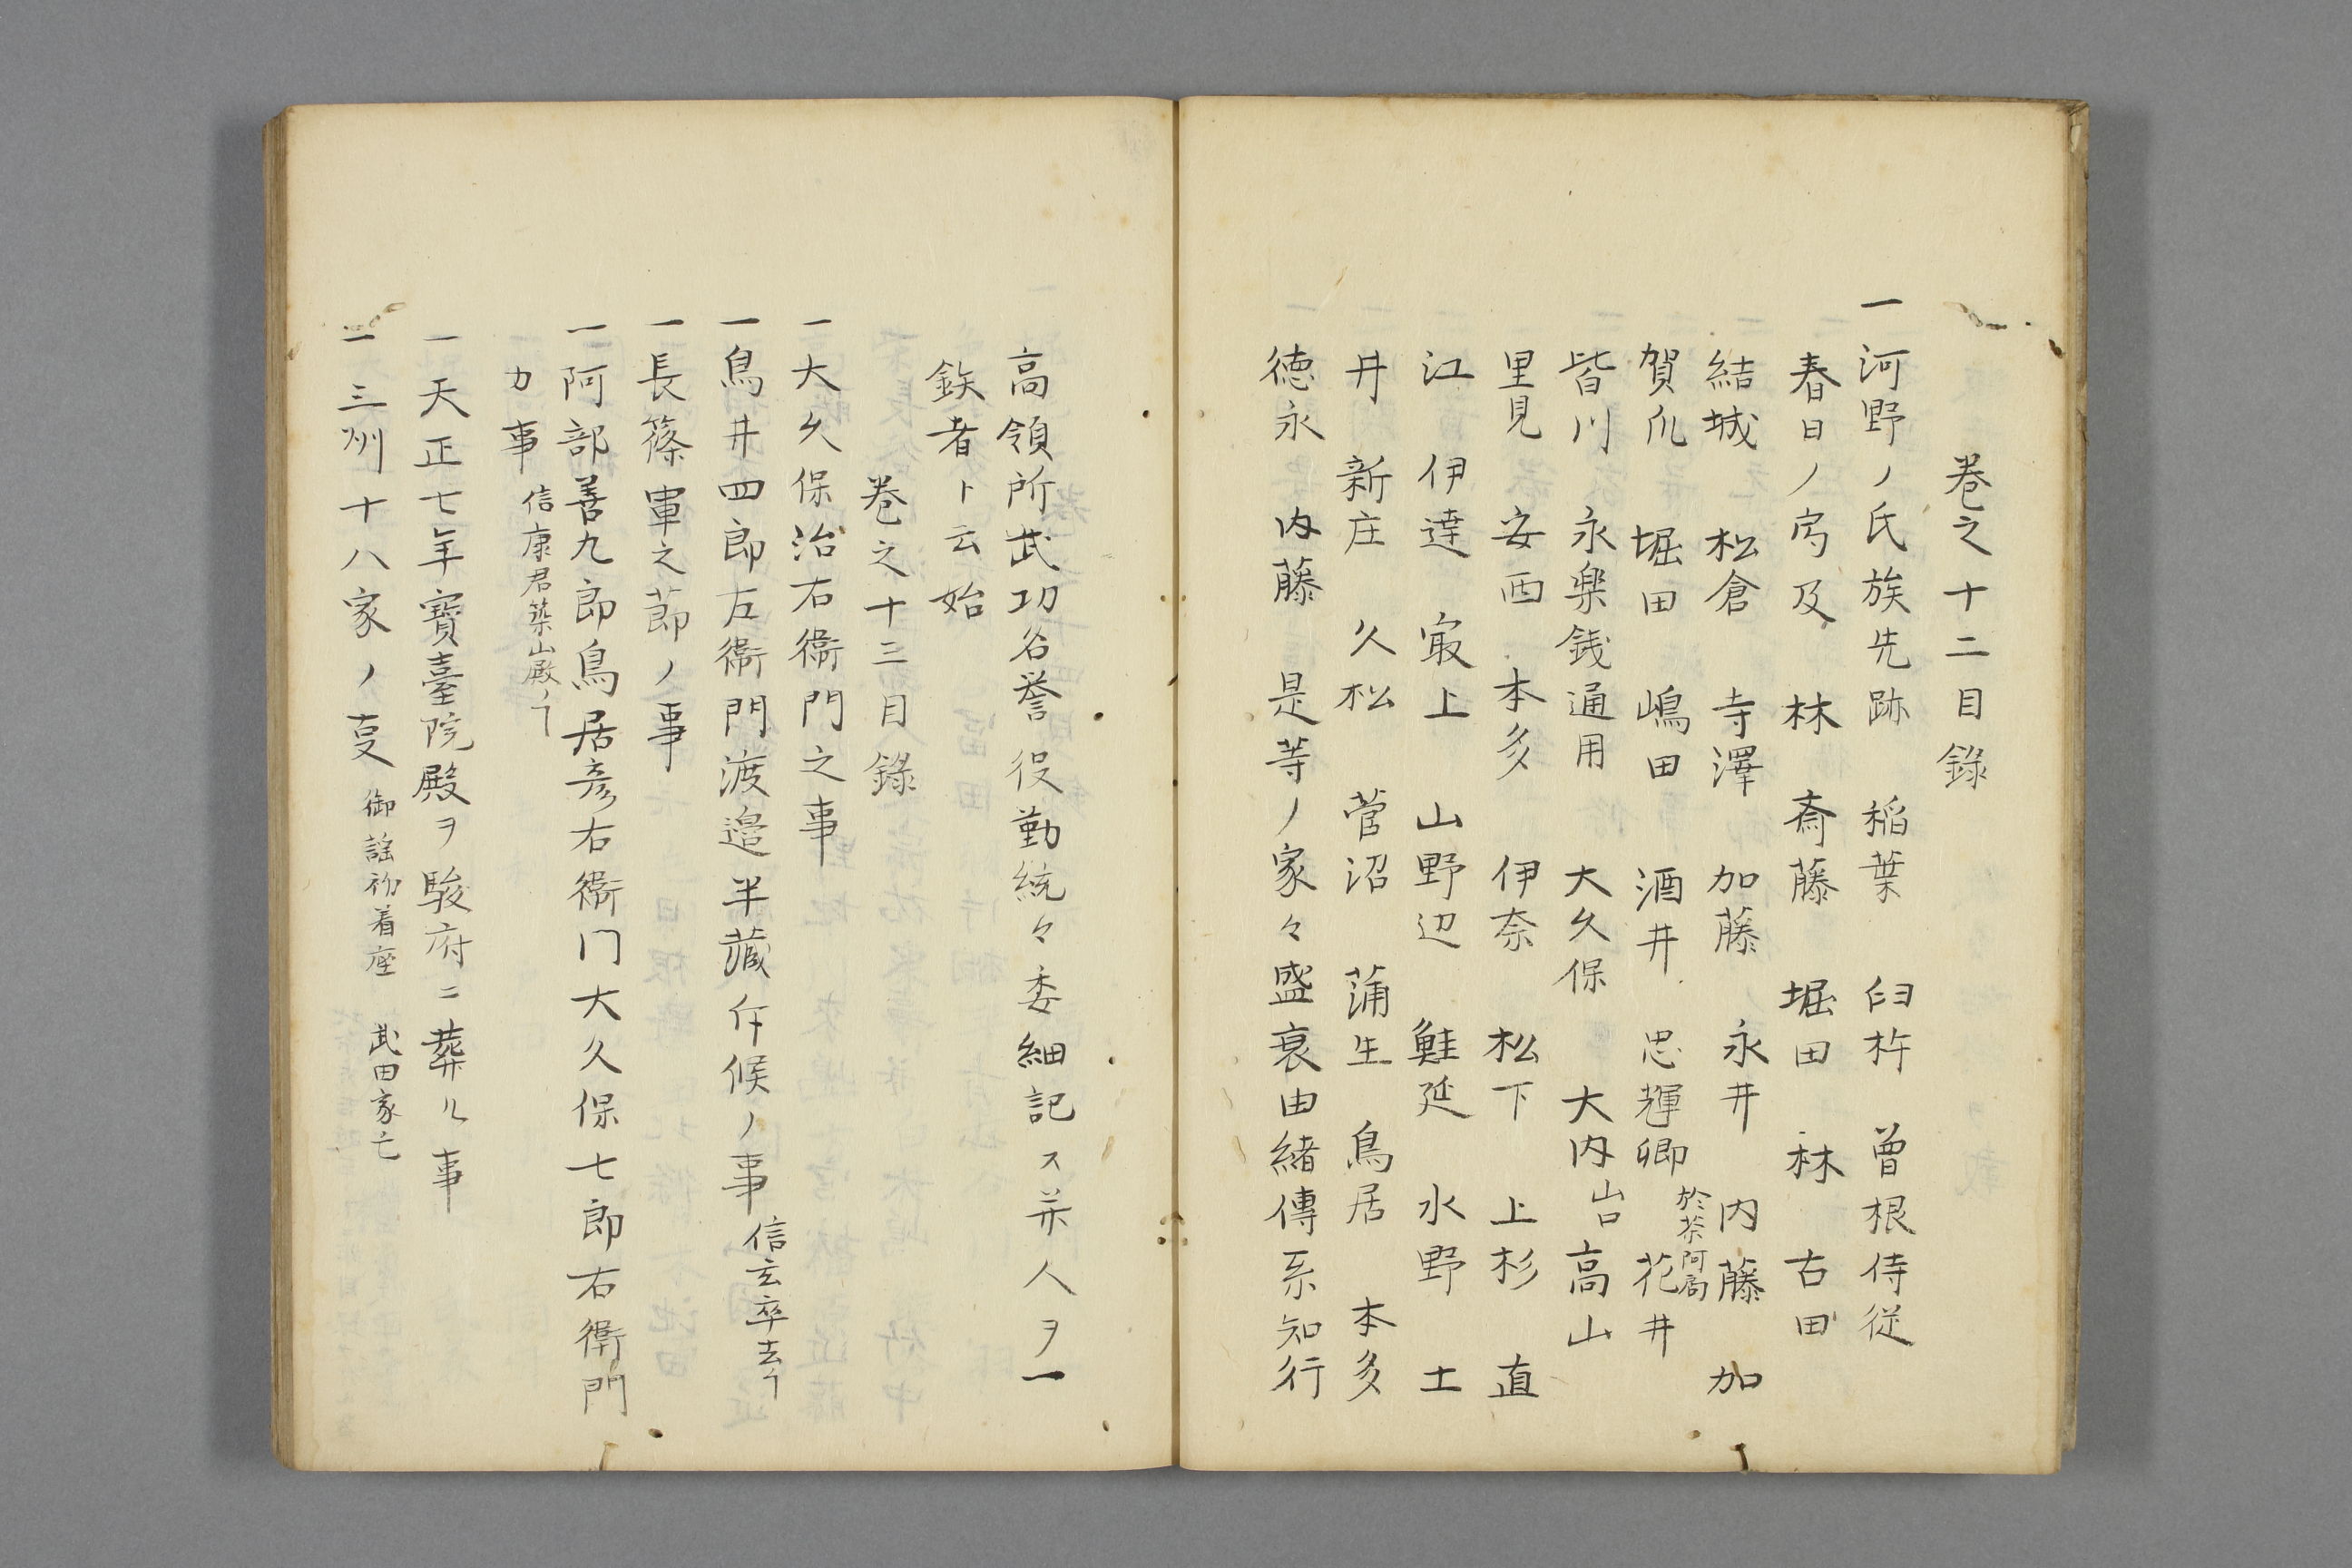 巻之十二目錄
一河野ノ氏族先跡　稲葉　臼杵　曽根侍従
春日ノ局及　林　斎藤　堀田　林　古田
結城　松倉　寺澤　加藤　永井　内藤　加
賀爪　堀田　嶋田　酒井　忠輝卿　於茶阿局　花井
皆川　永楽銭通用　大久保　大内　山口　高山
里見　安西　本多　伊奈　松下　上杉　直
江　伊達　冣上　山野辺　鮭延　水野　土
井　新庄　久松　菅沼　蒲生　鳥居　本多
徳永　内藤　是等ノ家々盛衰由緒傳系知行
高領所武功名誉役勤統々委細記ス并人ヲ一
鉄者ト云始
巻之十三目錄
一大久保治右衛門之事
一鳥井四郎左衛門渡邉半藏斥候ノ事　信玄卒去ヿ
一長篠軍之莭ノ事
一阿部善九郎鳥居彦右衛门大久保七郎右衛門
カ事　信康君築山殿ノヿ
一天正七年寶臺院殿ヲ駿府ニ葬ル事
一三州十八家ノ叓　御謡初着座　武田家亡